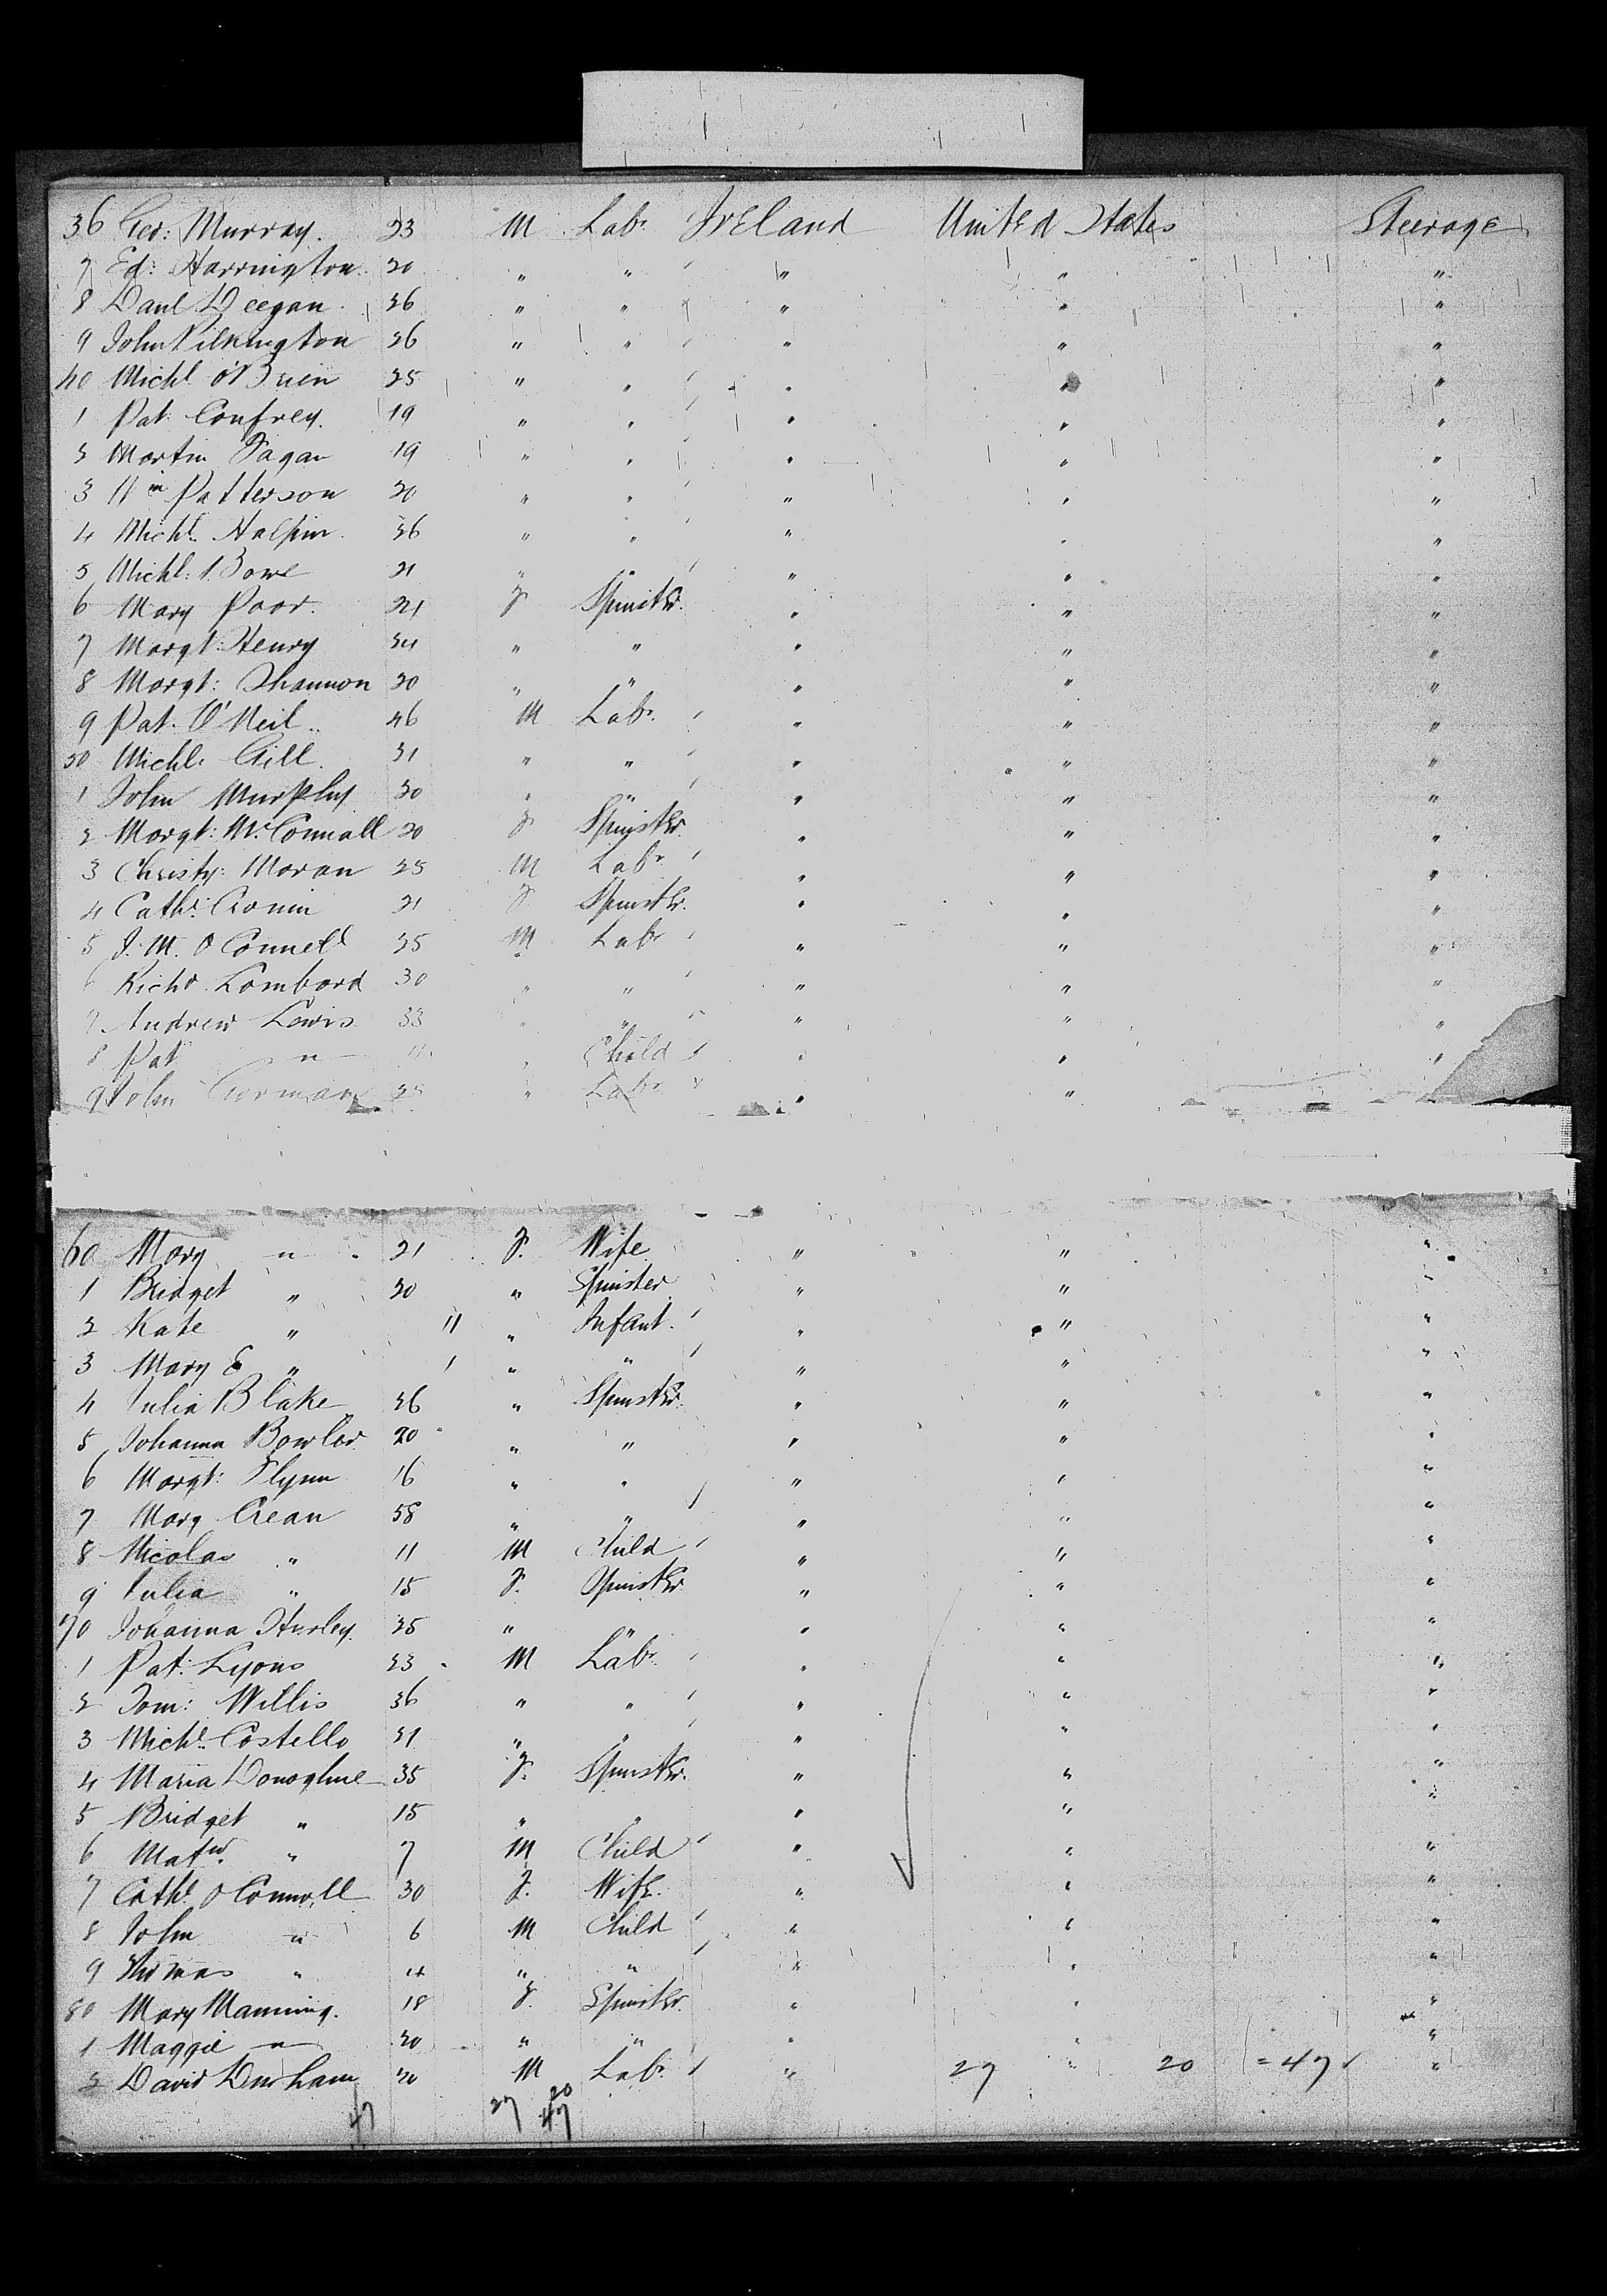 36 Geo: Murray. 23 M Labr Ireland United States Steerage
7 Ed: Harrington. 20 " " " " "
8 Danl Deegan. 26 " " " " "
9 John Pilkington 26 " " " " "
40 Michl O'Brien 25 " " " " "
1 Pat. Confrey. 19 " " " " "
2 Martin Fagan 19 " " " " "
3 Wm Patterson 20 " " " " "
4 Michl. Halpin. 26 " " " " "
5 Michl: Bowe 21 " " " " "
6 Mary Poor. 21 F Spinster. " " "
7 Margt: Henry 24 " " " " "
8 Margt: Shannon 20 " " " " "
9 Pat. O'Neil 46 M Labr. " " "
50 Michl. Gill. 21 " " " " "
1 John Murphy 20 " " " " "
2 Margt: McConnall 20 F Spinster. " " "
3 Christy: Moran 25 M Labr " " "
4 Cath: Cronin 21 F Spinster. " " "
5 J. M. O Connell 25 M Labr " " "
6 Richd. Lombard 30 " " " " "
7 Andrew Lewis 33 " " " " "
8 Pat " 11 " Child " " "
9 John Gorman 25 " Labr " "
60 Mary " 21 F. Wife " " "
1 Bridget " 20 " Spinster " " "
2 Kate " 11 " Infant. " " "
3 Mary E " 1 " " " " "
4 Julia Blake 26 " Spinster. " " "
5 Johanna Bowler 20 " " " " "
6 Margt: Flynn 16 " " " " "
7 Mary Crean 58 " " " " "
8 Nicolas " 11 M Child " " "
9 Julia " 15 F. Spinster " " "
70 Johanna Hurley. 25 " " " " "
1 Pat: Lyons 23 M Labr. " " "
2 Tom: Willis 36 " " " " "
3 Michl. Costello 21 " " " " "
4 Maria Donoghue 35 F. Spinster. " " "
5 Bridget " 15 " " " " "
6 Matw. " 7 M Child " " "
7 Cathe O Connell 30 F. Wife. " " "
8 John " 6 M Child " " "
9 Thomas " 4 " " " " "
80 Mary Manning. 18 F. Spinster. " " "
1 Maggie " 20 " " " " "
2 David Durham 20 M Labr. " 27 " 20 = 47 "
47 27 20
47